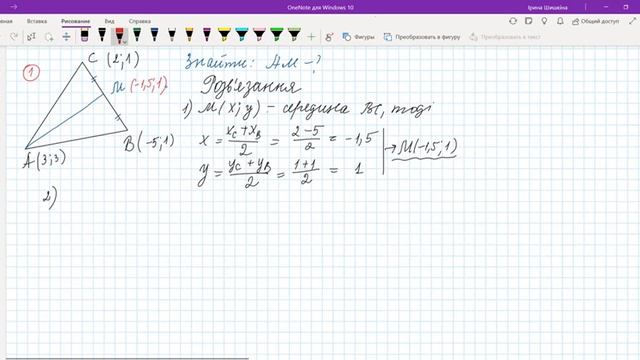 OneNote для Windows 10
Ірина Шишкіна
Вставка Рисование Вид Справка
Общий доступ
Фигуры Преобразовать в фигуру Преобразовать в текст
1
C (2; 1)
M (-1,5; 1)
B (-5; 1)
A (3; 3)
Знайти: AM - ?
Розв'язання
1) M (x; y) - середина BC, тоді
x = xC + xB / 2 = 2 - 5 / 2 = -1,5
→ M (-1,5; 1)
y = yC + yB / 2 = 1 + 1 / 2 = 1
2)